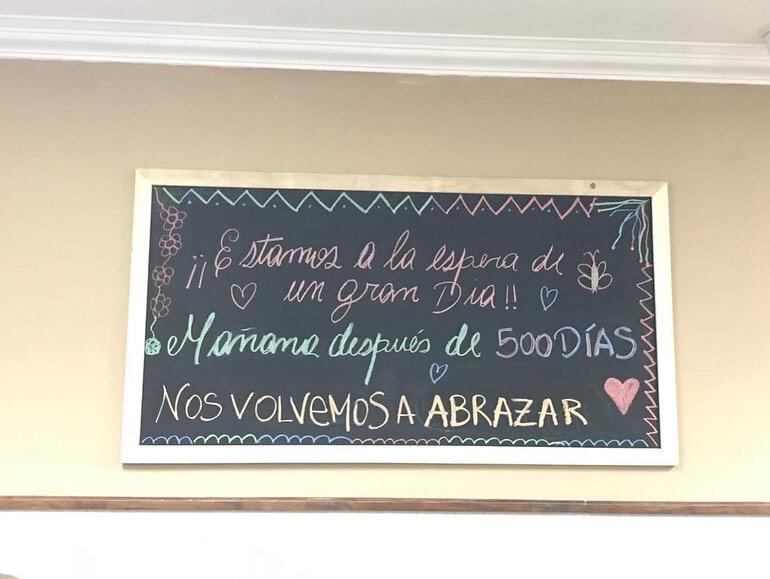 ¡¡Estamos a la espera de
un gran Dia!!
Mañana después de 500 DÍAS
NOS VOLVEMOS A ABRAZAR